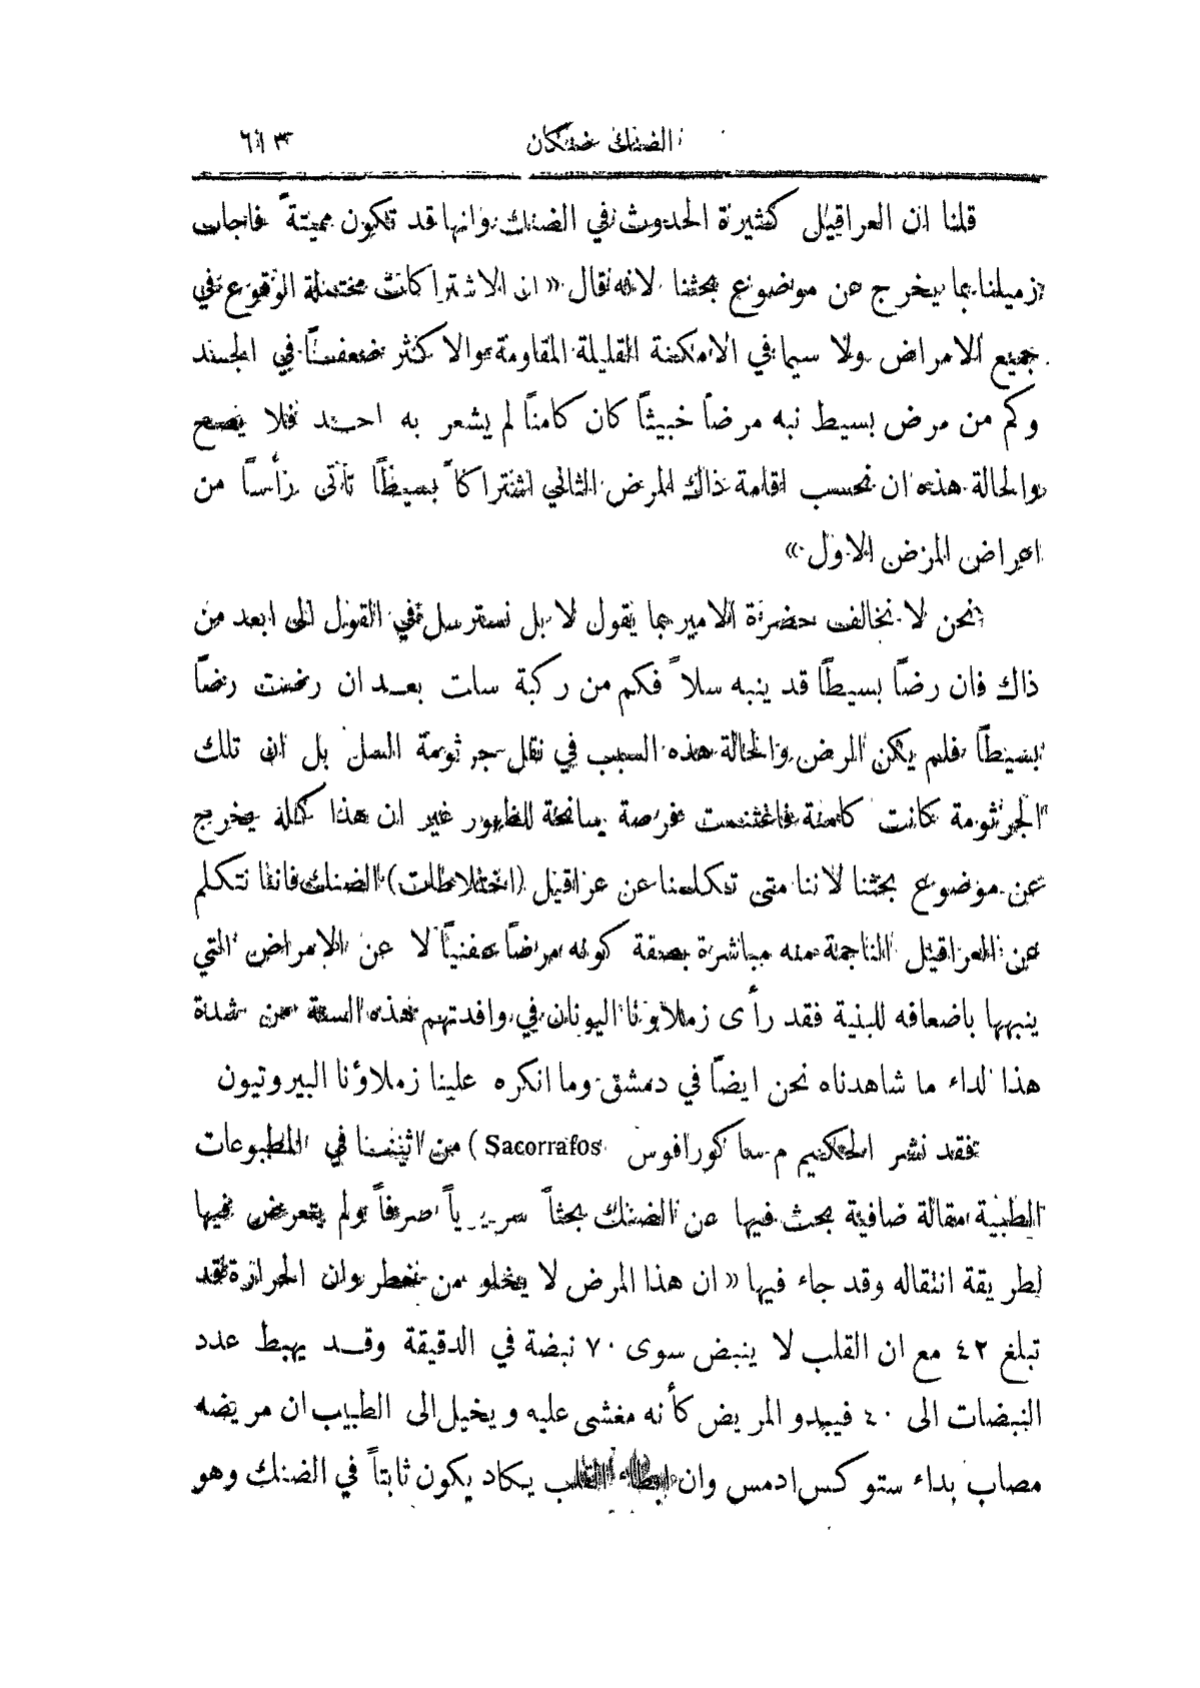 الضنك ضنكان
قلنا ان العراقيل كثيرة الحدوث في الضنك وانها قد تكون مميتةً فاجاب
زميلنا بما يخرج عن موضوع بحثنا لانه قال « ان الاشتراكات محتملة الوقوع في
جميع الامراض ولا سيما في الامكنة القليلة المقاومة والاكثر ضعفاً في الجسد
وكم من مرض بسيط نبه مرضاً خبيثاً كان كامناً لم يشعر به احد فلا يصح
والحالة هذه ان نحسب اقامة ذاك المرض الثاني اشتراكاً بسيطاً تأتى رأساً من
اعراض المرض الاول »
نحن لا نخالف حضرة الامير بما يقول لا بل نسترسل في القول الى ابعد من
ذاك فان رضّاً بسيطاً قد ينبه سلاً فكم من ركبة سلت بعد ان رضت رضّاً
بسيطاً فلم يكن الرض والحالة هذه السبب في نقل جرثومة السل بل ان تلك
الجرثومة كانت كامنة فاغتنمت فرصة سانحة للظهور غير ان هذا كله يخرج
عن موضوع بحثنا لاننا متى تكلمنا عن عراقيل (اختلاطات) الضنك فاننا نتكلم
عن العراقيل الناجمة منه مباشرة بصفة كونه مرضاً عفنياً لا عن الامراض التي
ينبهها باضعافه للبنية فقد رأى زملاؤنا اليونان في وافدتهم هذه السنة من شدة
هذا الداء ما شاهدناه نحن ايضاً في دمشق وما انكره علينا زملاؤنا البيروتيون
فقد نشر الحكيم م سا كورافوس Sacorrafos ) من اثينا في المطبوعات
الطبية مقالة ضافية بحث فيها عن الضنك بحثاً سريرياً صرفاً ولم يتعرض فيها
لطريقة انتقاله وقد جاء فيها « ان هذا المرض لا يخلو من خطر وان الحرارة قد
تبلغ ٤٢ مع ان القلب لا ينبض سوى ٧٠ نبضة في الدقيقة وقد يهبط عدد
النبضات الى ٤٠ فيبدو المريض كأنه مغشى عليه ويخيل الى الطبيب ان مريضه
مصاب بداء ستوكس ادمس وان ابطاء القلب يكاد يكون ثابتاً في الضنك وهو